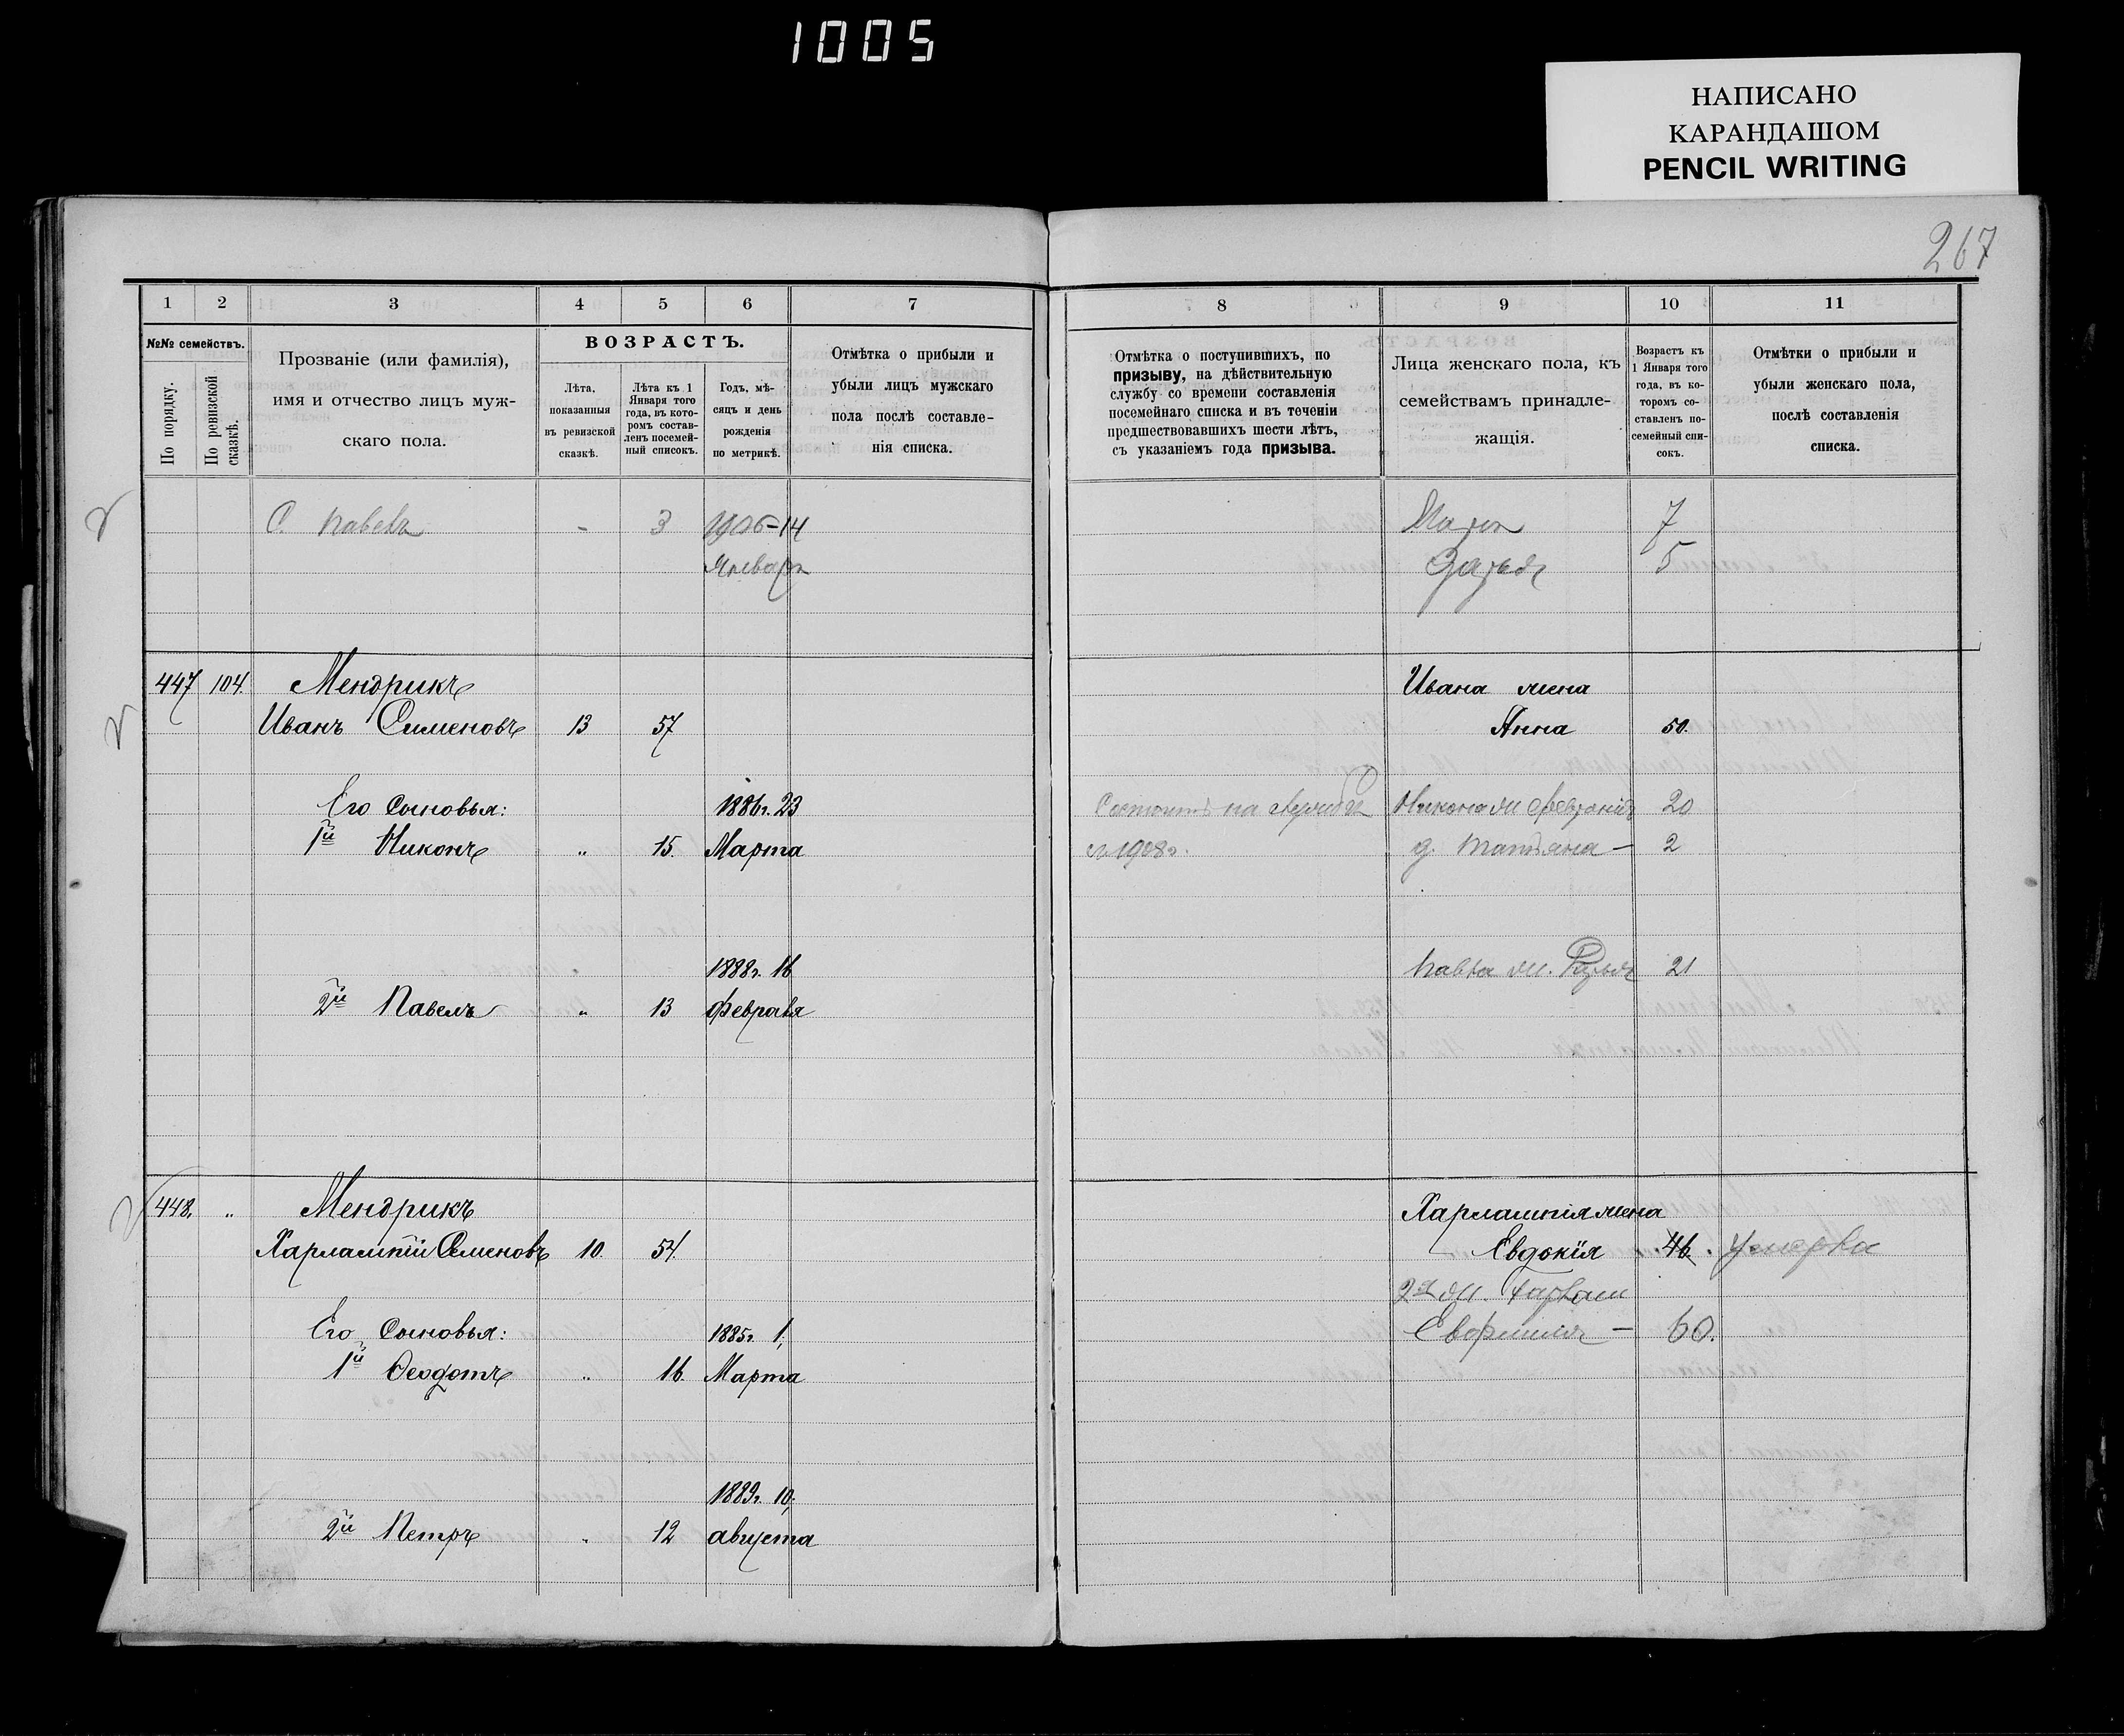 1005
НАПИСАНО
КАРАНДАШОМ
PENCIL WRITING
267
1 2 3 4 5 6 7
№№ семействъ.
По порядку.
По ревизской сказкѣ.
Прозваніе (или фамилія),
имя и отчество лицъ муж-
скаго пола.
ВОЗРАСТЪ.
Лѣта,
показанныя
въ ревизской
сказкѣ.
Лѣта къ 1
Января того
года, въ кото-
ромъ состав-
ленъ посемей-
ный списокъ.
Годъ, мѣ-
сяцъ и день
рожденія
по метрикѣ.
Отмѣтка о прибыли и
убыли лицъ мужскаго
пола послѣ составле-
нія списка.
8 9 10 11
Отмѣтка о поступившихъ, по
призыву, на дѣйствительную
службу со времени составленія
посемейнаго списка и въ теченіи
предшествовавшихъ шести лѣтъ,
съ указаніемъ года призыва.
Лица женскаго пола, къ
семействамъ принадле-
жащія.
Возрастъ къ
1 Января того
года, въ ко-
торомъ со-
ставленъ по-
семейный спи-
сокъ.
Отмѣтки о прибыли и
убыли женскаго пола,
послѣ составленія
списка.
С. Павелъ - 3 1906-14
Января
7
Дарья 5
447 104. Мендрикъ
Иванъ Сименовъ 13 57
Ивана жена
Анна 50.
Его Сыновья: 1886г. 23
1й Никонъ „ 15. Марта
Состоитъ на службѣ
съ 1908г.
Никона ж 20
д. Татьяна — 2
1888г. 16
2й Павелъ „ 13 февраля
Павла ж. 21
448. „ Мендрикъ
Харлампій Семеновъ 10. 54.
Харлампія жена
Евдокія 46. умерла
2я ж. Харлам
Евфимія — 60.
Его Сыновья: 1885г. 1,
1й Ѳеодотъ „ 16. Марта
1889г. 10,
2й Петръ „ 12 августа